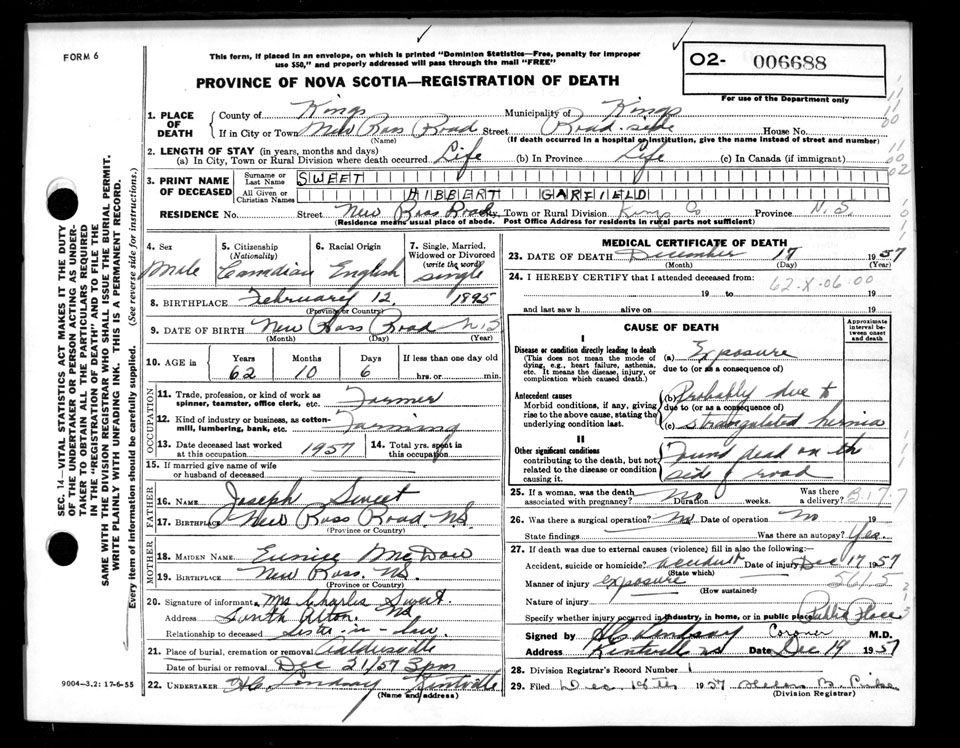 FORM 6
This form, if placed in an envelope, on which is printed "Dominion Statistics—Free, penalty for improper
use $50," and properly addressed will pass through the mail "FREE"
PROVINCE OF NOVA SCOTIA—REGISTRATION OF DEATH
02- 006688
For use of the Department only
SEC. 14—VITAL STATISTICS ACT MAKES IT THE DUTY
OF THE UNDERTAKER OR PERSON ACTING AS UNDER-
TAKER TO OBTAIN ALL THE PARTICULARS REQUIRED
IN THE "REGISTRATION OF DEATH" AND TO FILE THE
SAME WITH THE DIVISION REGISTRAR WHO SHALL ISSUE THE BURIAL PERMIT.
WRITE PLAINLY WITH UNFADING INK. THIS IS A PERMANENT RECORD.
Every item of information should be carefully supplied. (See reverse side for instructions.)
1. PLACE OF DEATH
County of Kings Municipality of Kings
If in City or Town New Ross Road Street Road-side House No.
(Name) (If death occurred in a hospital or institution, give the name instead of street and number)
2. LENGTH OF STAY (in years, months and days)
(a) In City, Town or Rural Division where death occurred Life (b) In Province Life (c) In Canada (if immigrant)
3. PRINT NAME OF DECEASED
Surname or Last Name SWEET
All Given or Christian Names HIBBERT GARFIELD
RESIDENCE No. Street New Ross Road City, Town or Rural Division Kings Co Province N.S.
(Residence means usual place of abode. Post Office Address for residents in rural parts not sufficient)
4. Sex Male
5. Citizenship (Nationality) Canadian
6. Racial Origin English
7. Single, Married, Widowed or Divorced (write the word) single
8. BIRTHPLACE February 12, 1895
(Province or Country)
9. DATE OF BIRTH New Ross Road N.S
(Month) (Day) (Year)
10. AGE in Years Months Days If less than one day old
62 10 6 hrs. or min.
OCCUPATION
11. Trade, profession, or kind of work as spinner, teamster, office clerk, etc. Farmer
12. Kind of industry or business, as cotton-mill, lumbering, bank, etc. Farming
13. Date deceased last worked at this occupation 1957
14. Total yrs. spent in this occupation
15. If married give name of wife or husband of deceased
FATHER
16. NAME Joseph Sweet
17. BIRTHPLACE New Ross Road. N.S.
(Province or Country)
MOTHER
18. MAIDEN NAME Eunice
19. BIRTHPLACE New Ross. N.S.
(Province or Country)
20. Signature of informant Mrs Charles Sweet.
Address South Alton. N.S.
Relationship to deceased Sister-in-law
21. Place of burial, cremation or removal Aldersville
Date of burial or removal Dec 21/57 3pm
22. UNDERTAKER Lindsay Kentville
(Name and Address)
9004—3.2: 17-6-55
MEDICAL CERTIFICATE OF DEATH
23. DATE OF DEATH December 17 1957
(Month) (Day) (Year)
24. I HEREBY CERTIFY that I attended deceased from:
62-X-06.00
19 to 19
and last saw h alive on 19
CAUSE OF DEATH
Approximate interval between onset and death
I
Disease or condition directly leading to death (a) Exposure
(This does not mean the mode of dying, e.g., heart failure, asthenia, etc. It means the disease, injury, or complication which caused death.)
due to (or as a consequence of)
Antecedent causes (b) Probably due to
Morbid conditions, if any, giving rise to the above cause, stating the underlying condition last.
due to (or as a consequence of)
(c) strangulated hernia
II
Other significant conditions contributing to the death, but not related to the disease or condition causing it.
Found dead on the
side of road
25. If a woman, was the death associated with pregnancy? No Duration weeks. Was there a delivery?
26. Was there a surgical operation? No Date of operation No 19
State findings Was there an autopsy? Yes.
27. If death was due to external causes (violence) fill in also the following:—
Accident, suicide or homicide? accident Date of injury Dec 17 1957
(State which)
Manner of injury exposure 561.5
(How sustained)
Nature of injury
Specify whether injury occurred in industry, in home, or in public place Public Place
Signed by Coroner M.D.
Address Kentville NS Date Dec 19 1957
28. Division Registrar's Record Number 1
29. Filed Dec. 19th 1957 Helen B.
(Division Registrar)